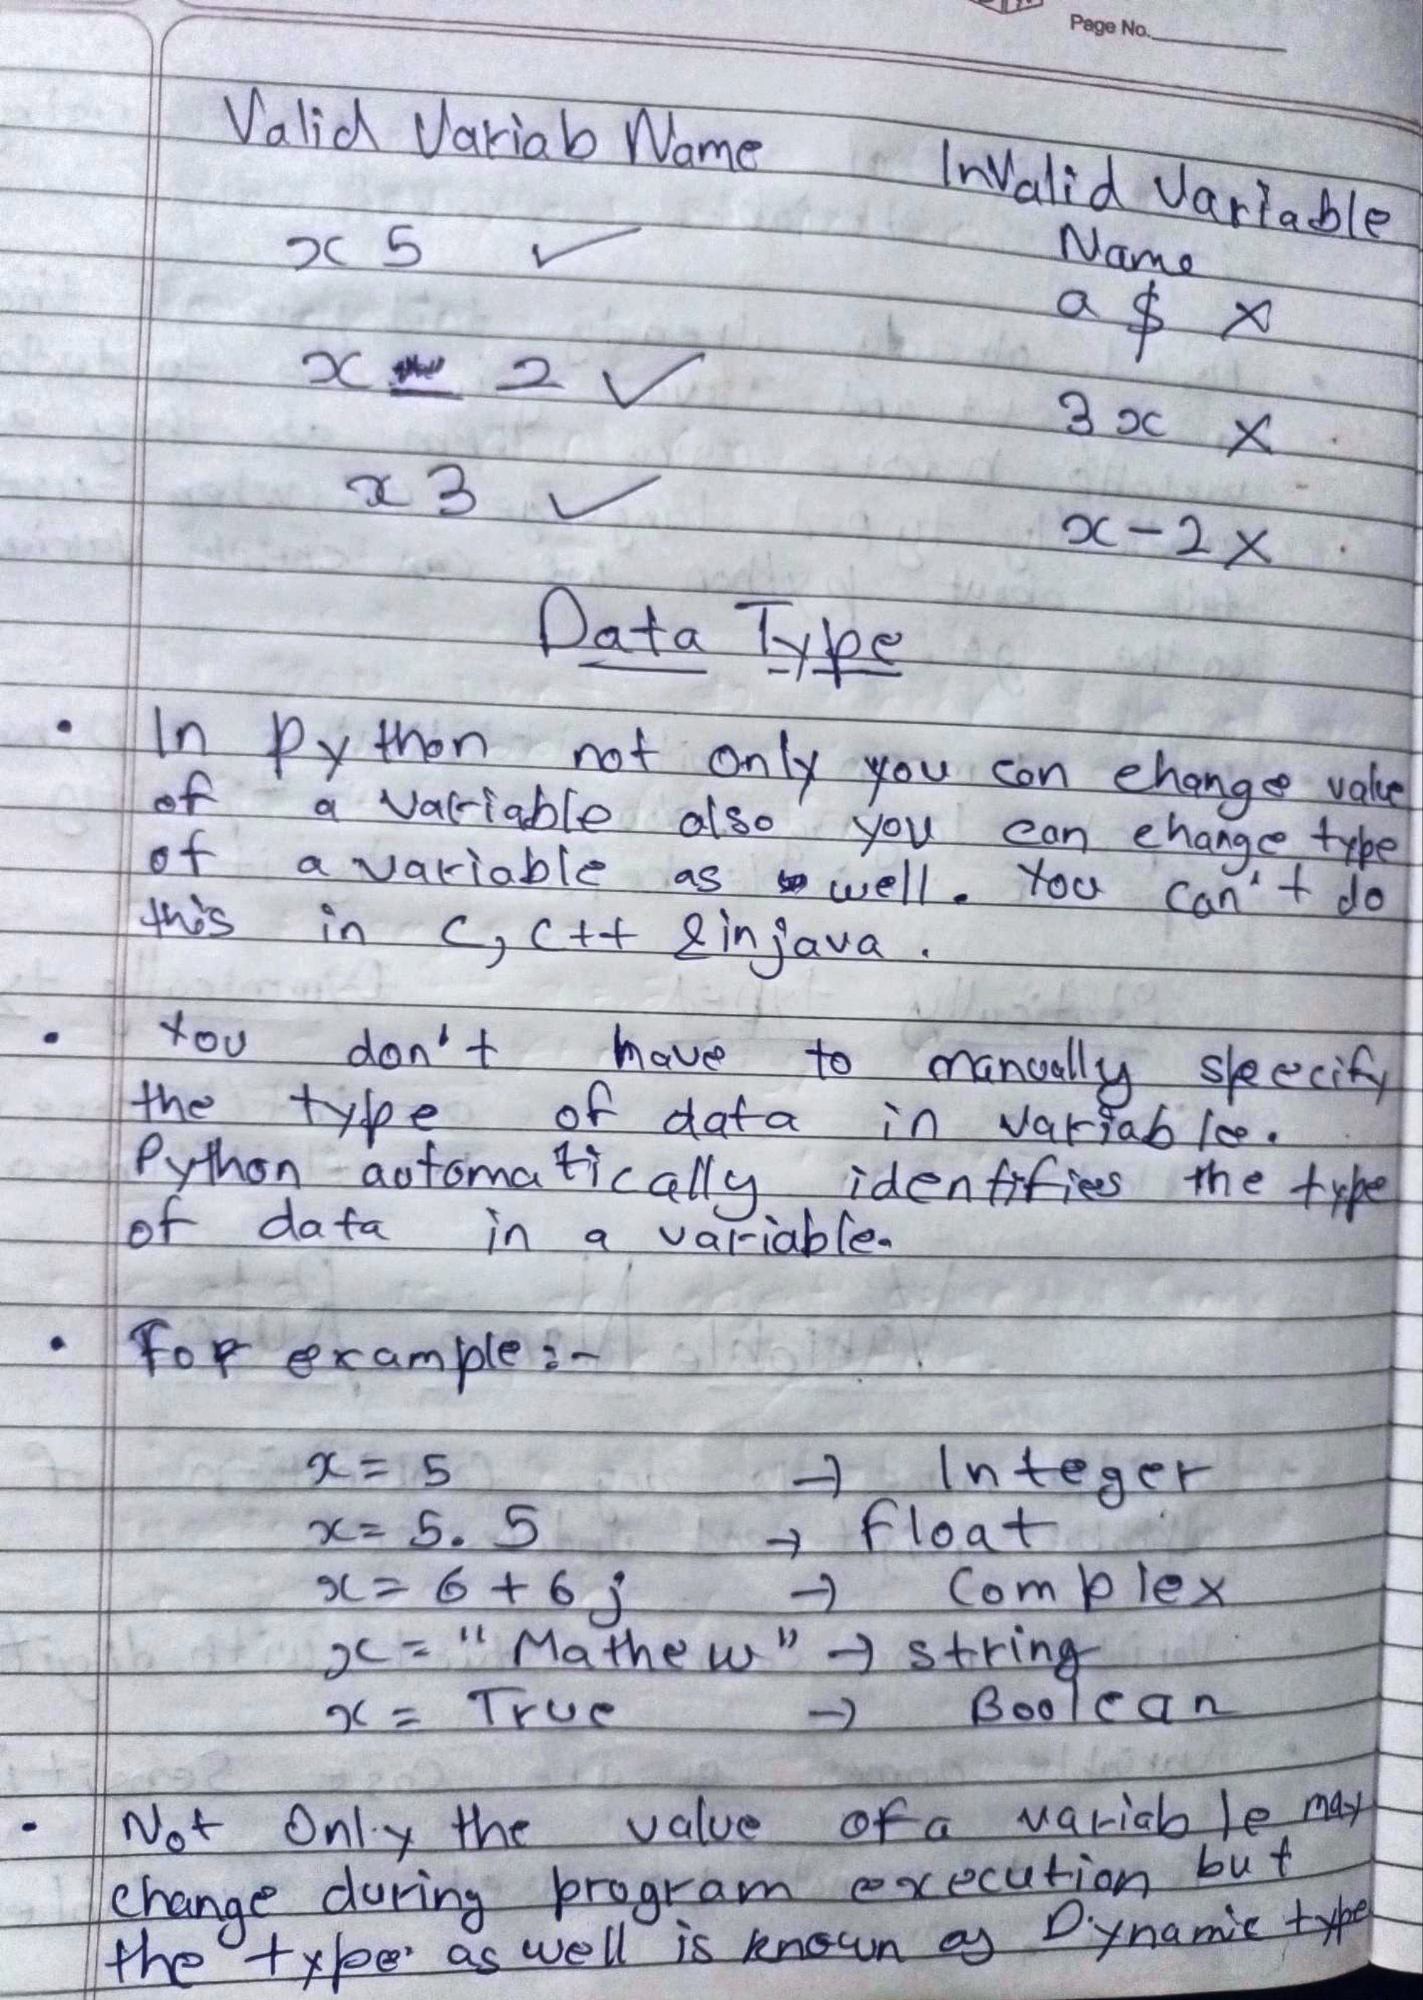 Page No.
Valid Variab Name
Invalid Variable
Name
x 5 ✓
a $ ×
x _ 2 ✓
3x ×
x3 ✓
x-2 ×
Data Type
• In Python not only you can change value
of a variable also you can change type
of a variable as well. You can't do
this in C, C++ & in java.
• You don't have to manually specify
the type of data in variable.
Python automatically identifies the type
of data in a variable.
• For example :-
x = 5 → Integer
x = 5.5 → float
x = 6 + 6j → Complex
x = "Mathew" → string
x = True → Boolean
• Not Only the value of a variable may
change during program execution but
the type as well is known as Dynamic type